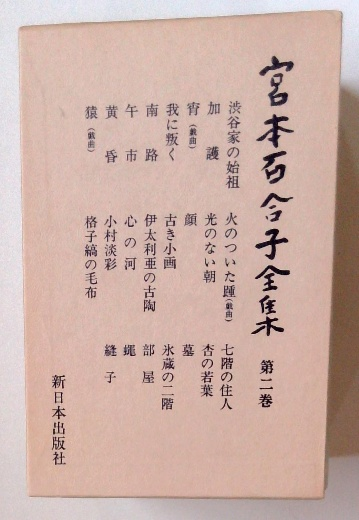 宮本百合子全集 第二巻
渋谷家の始祖 火のついた踵(戯曲) 七階の住人
加護 光のない朝 杏の若葉
宵(戯曲) 顔 墓
我に叛く 古き小画 氷蔵の二階
南路 伊太利亜の古陶 部屋
午市 心の河 蠅
黄昏 小村淡彩 縫子
猿(戯曲) 格子縞の毛布
新日本出版社